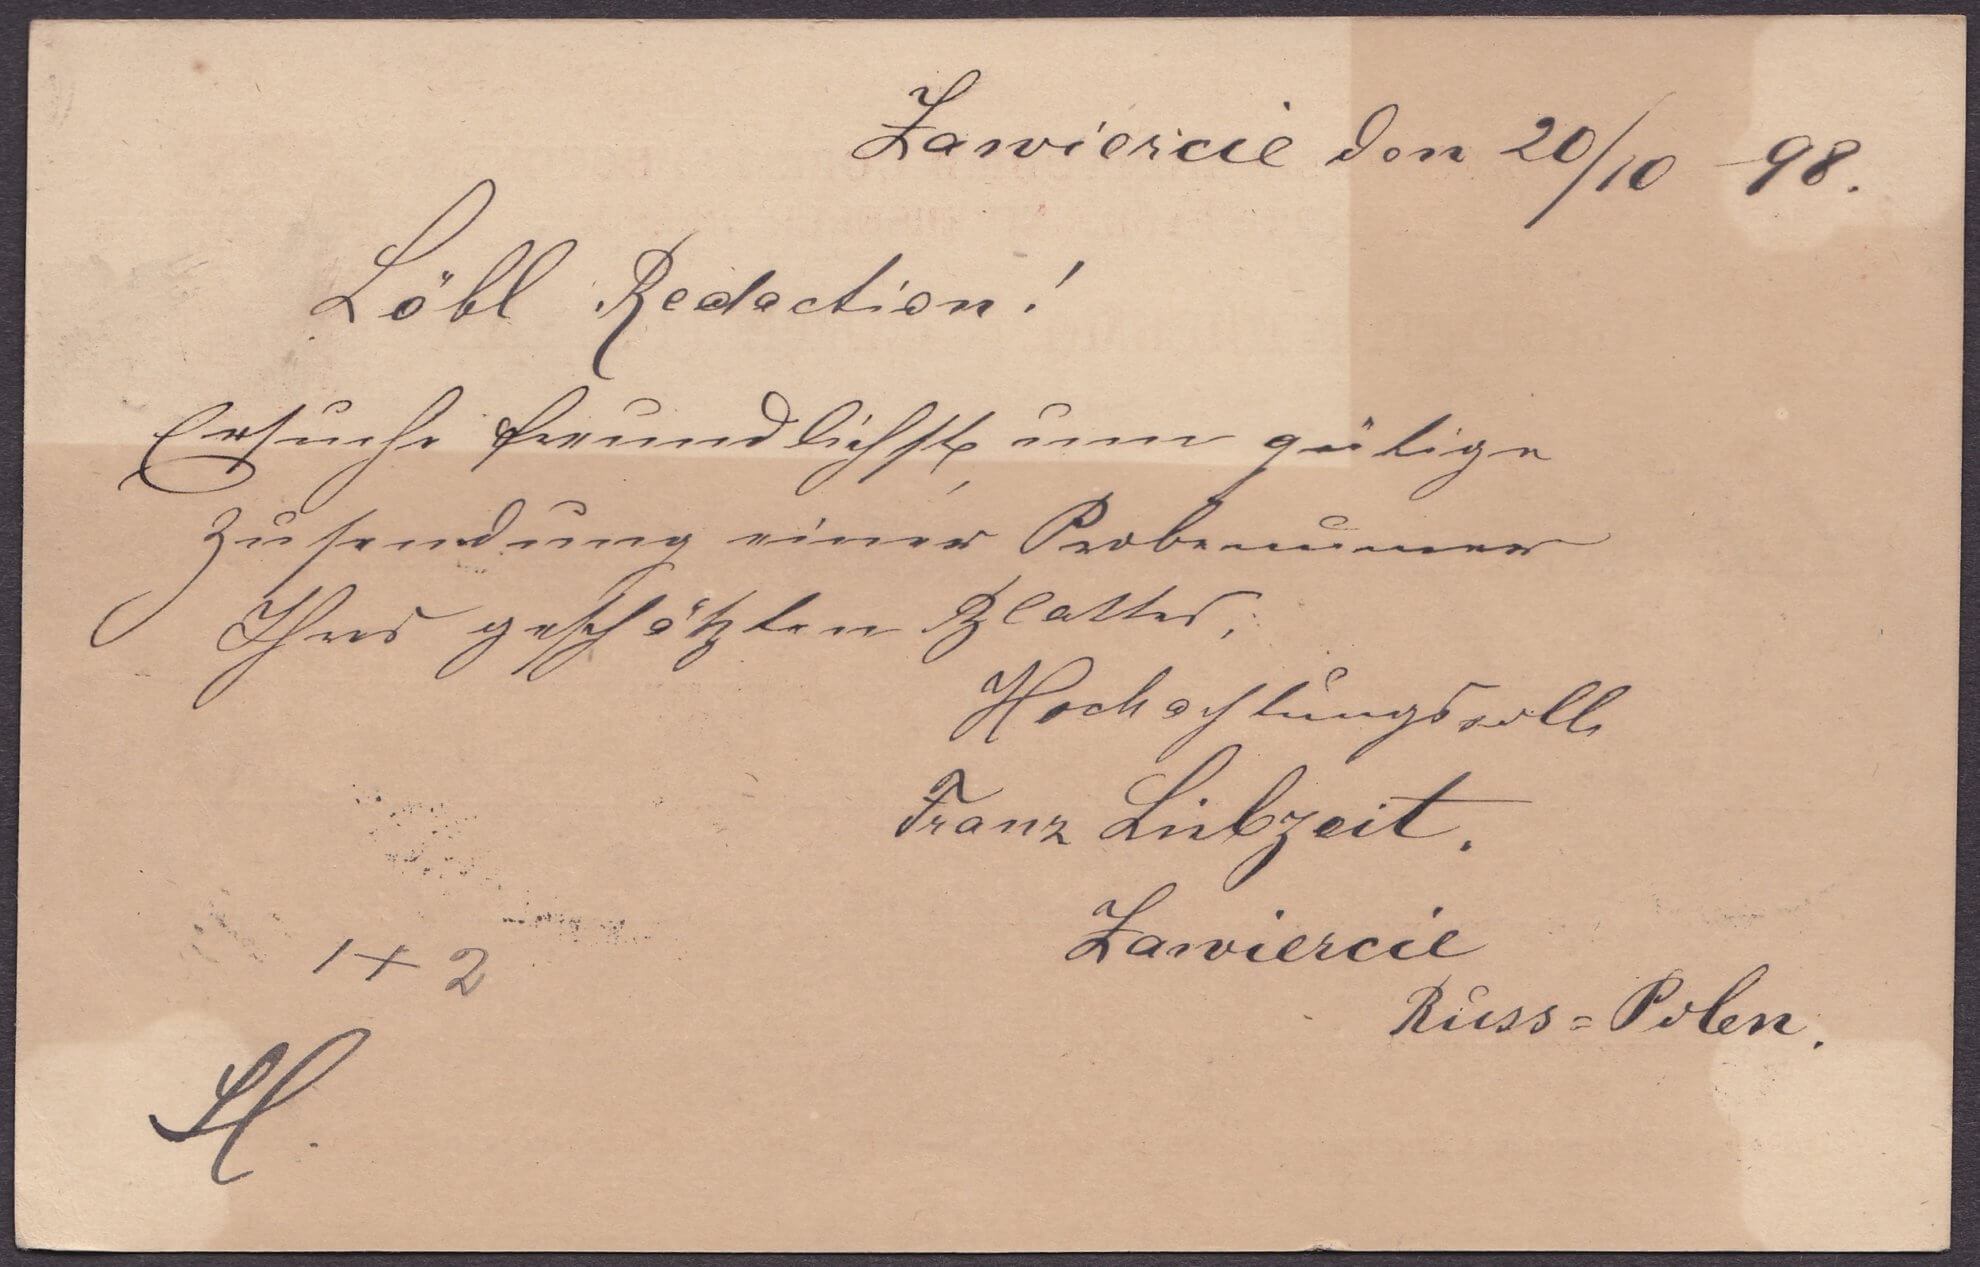 Zawiercie den 20/10 - 98.
Löbl Redaction!
Ersuche freundlichst um gütige
Zusendung einer Probenumer
Ihres geschätzten Blattes.
Hochachtungsvoll
Franz Liebzeit.
Zawiercie
Russ = Polen.
1 + 2